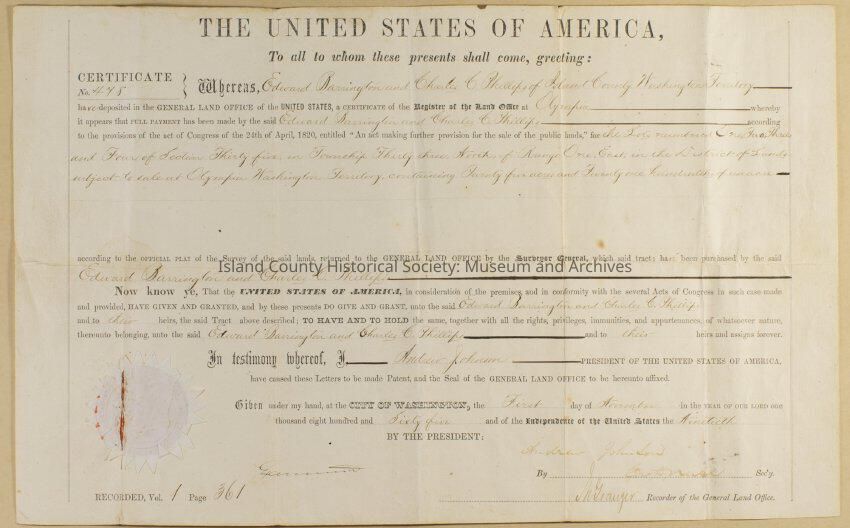 THE UNITED STATES OF AMERICA,
To all to whom these presents shall come, greeting:
CERTIFICATE
No. 478
Whereas, Edward Barrington and Charles C Phillips of Island County Washington Territory
have deposited in the GENERAL LAND OFFICE of the UNITED STATES, a CERTIFICATE of the Register of the Land Office at Olympia whereby
it appears that FULL PAYMENT has been made by the said Edward Barrington and Charles C. Phillips according
to the provisions of the act of Congress of the 24th of April, 1820, entitled "An act making further provision for the sale of the public lands," for the Lots numbered One, Two, Three
and Four of Section Thirty five, in Township Thirty three North, of Range One East, in the District of Lands
subject to sale at Olympia Washington Territory, containing Twenty five acres and Twenty one hundredths of an acre
according to the OFFICIAL PLAT of the Survey of the said lands, returned to the GENERAL LAND OFFICE by the Surveyor General, which said tracts have been purchased by the said
Edward Barrington and Charles C. Phillips
Island County Historical Society: Museum and Archives
Now know ye, That the UNITED STATES OF AMERICA, in consideration of the premises, and in conformity with the several Acts of Congress in such case made
and provided, HAVE GIVEN AND GRANTED, and by these presents DO GIVE AND GRANT, unto the said Edward Barrington and Charles C. Phillips
and to their heirs, the said Tract above described; TO HAVE AND TO HOLD the same, together with all the rights, privileges, immunities, and appurtenances, of whatsoever nature,
thereunto belonging, unto the said Edward Barrington and Charles C. Phillips and to their heirs and assigns forever.
In testimony whereof, I Andrew Johnson PRESIDENT OF THE UNITED STATES OF AMERICA,
have caused these Letters to be made Patent, and the Seal of the GENERAL LAND OFFICE to be hereunto affixed.
Given under my hand, at the CITY OF WASHINGTON, the First day of November in the YEAR OF OUR LORD one
thousand eight hundred and Sixty five and of the Independence of the United States the Ninetieth
BY THE PRESIDENT: Andrew Johnson
By Secy.
RECORDED, Vol. 1 Page 361
Granger Recorder of the General Land Office.